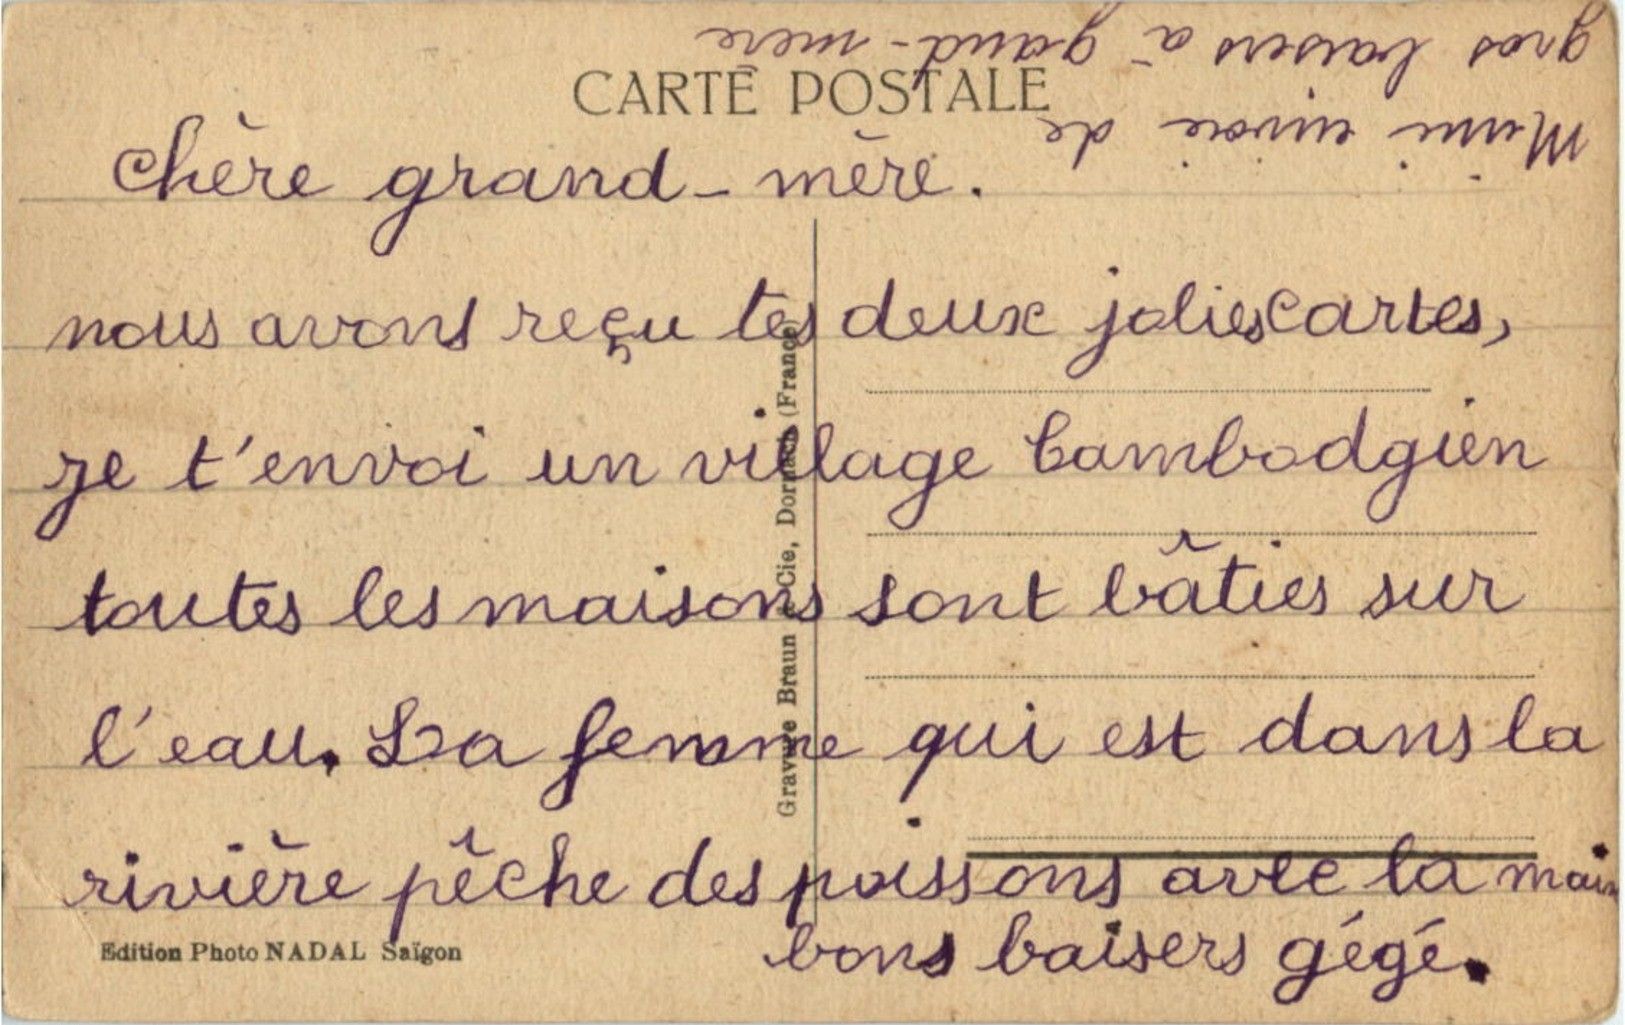 CARTE POSTALE
chère grand-mère.
nous avons reçu tes deux jolies cartes,
je t'envoi un village cambodgien
toutes les maisons sont bâties sur
l'eau. La femme qui est dans la
rivière pêche des poissons avec la main
bons baisers gégé.
Mimi envoie de
gros baisers à gand-mère
Gravure Braun & Cie, Dornach (France)
Edition Photo NADAL Saïgon